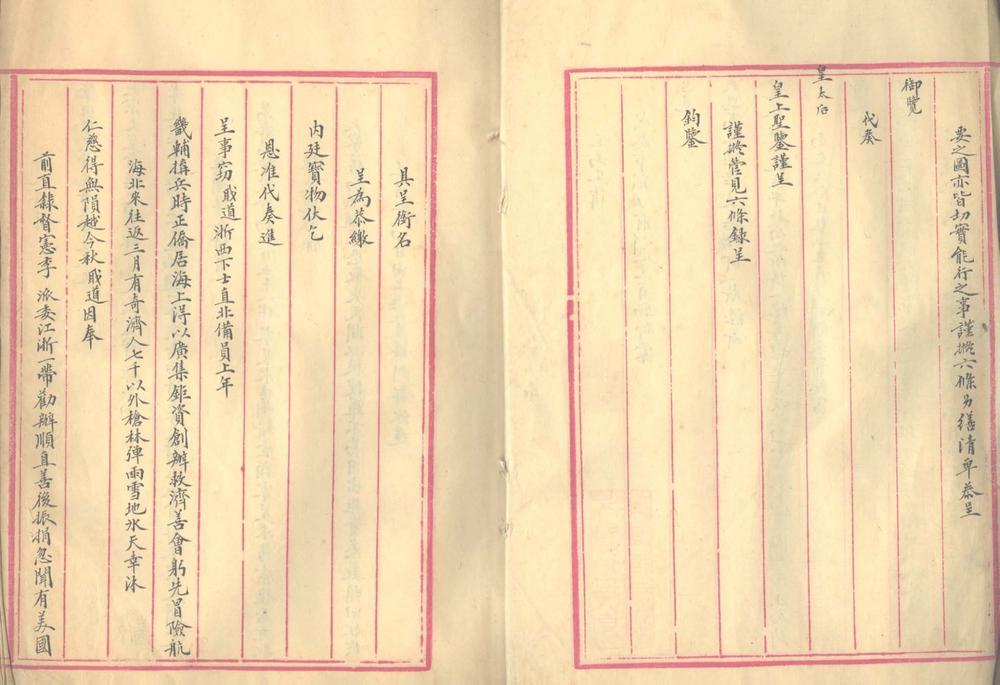 要之圖亦皆切實能行之事謹擬六條另繕清單恭呈
御覽
代奏
皇太后
皇上聖鑒謹呈
謹擬管見六條錄呈
鈞鑒
具呈銜名
呈為恭繳
內廷寶物伏乞
恩准代奏進
呈事竊職道浙西下士直北備員上年
畿輔搆兵時正僑居海上得以廣集鉅資創辦救濟善會躬先冒險航
海北來往返三月有奇濟人七千以外槍林彈雨雪地氷天幸沐
仁慈得無隕越今秋職道因奉
前直隸督憲李派委江浙一帶勸辦順直善後振捐忽聞有美國